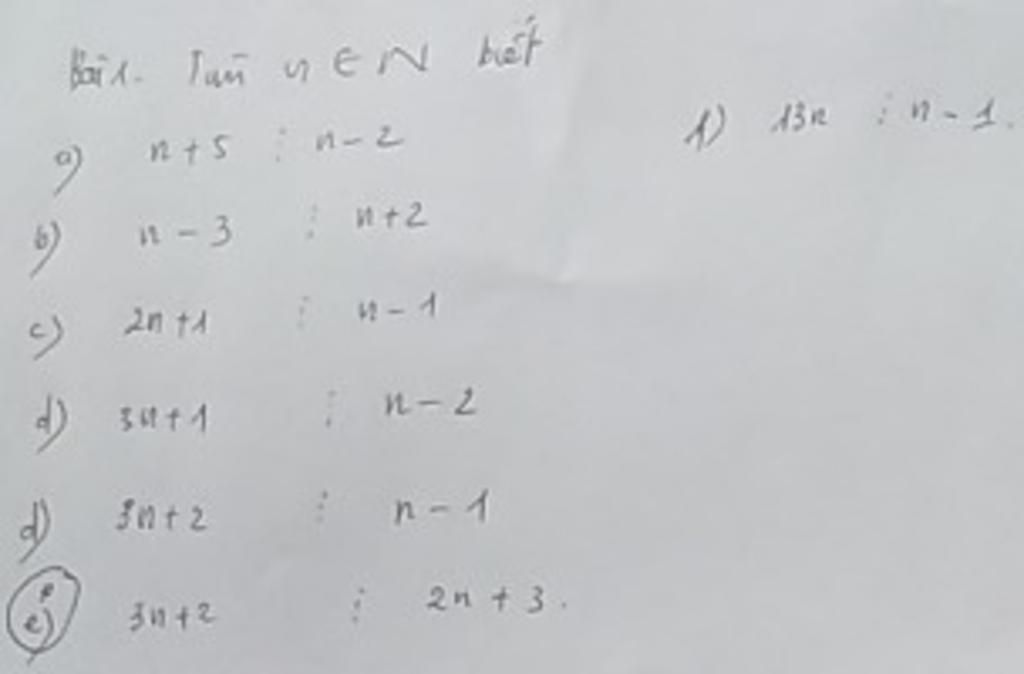 Bài 1. Tìm n ∈ N biết
a) n + 5 ⋮ n - 2
b) n - 3 ⋮ n + 2
c) 2n + 1 ⋮ n - 1
d) 3n + 1 ⋮ n - 2
d) 3n + 2 ⋮ n - 1
e) 3n + 2 ⋮ 2n + 3.
f) 13n ⋮ n - 1.